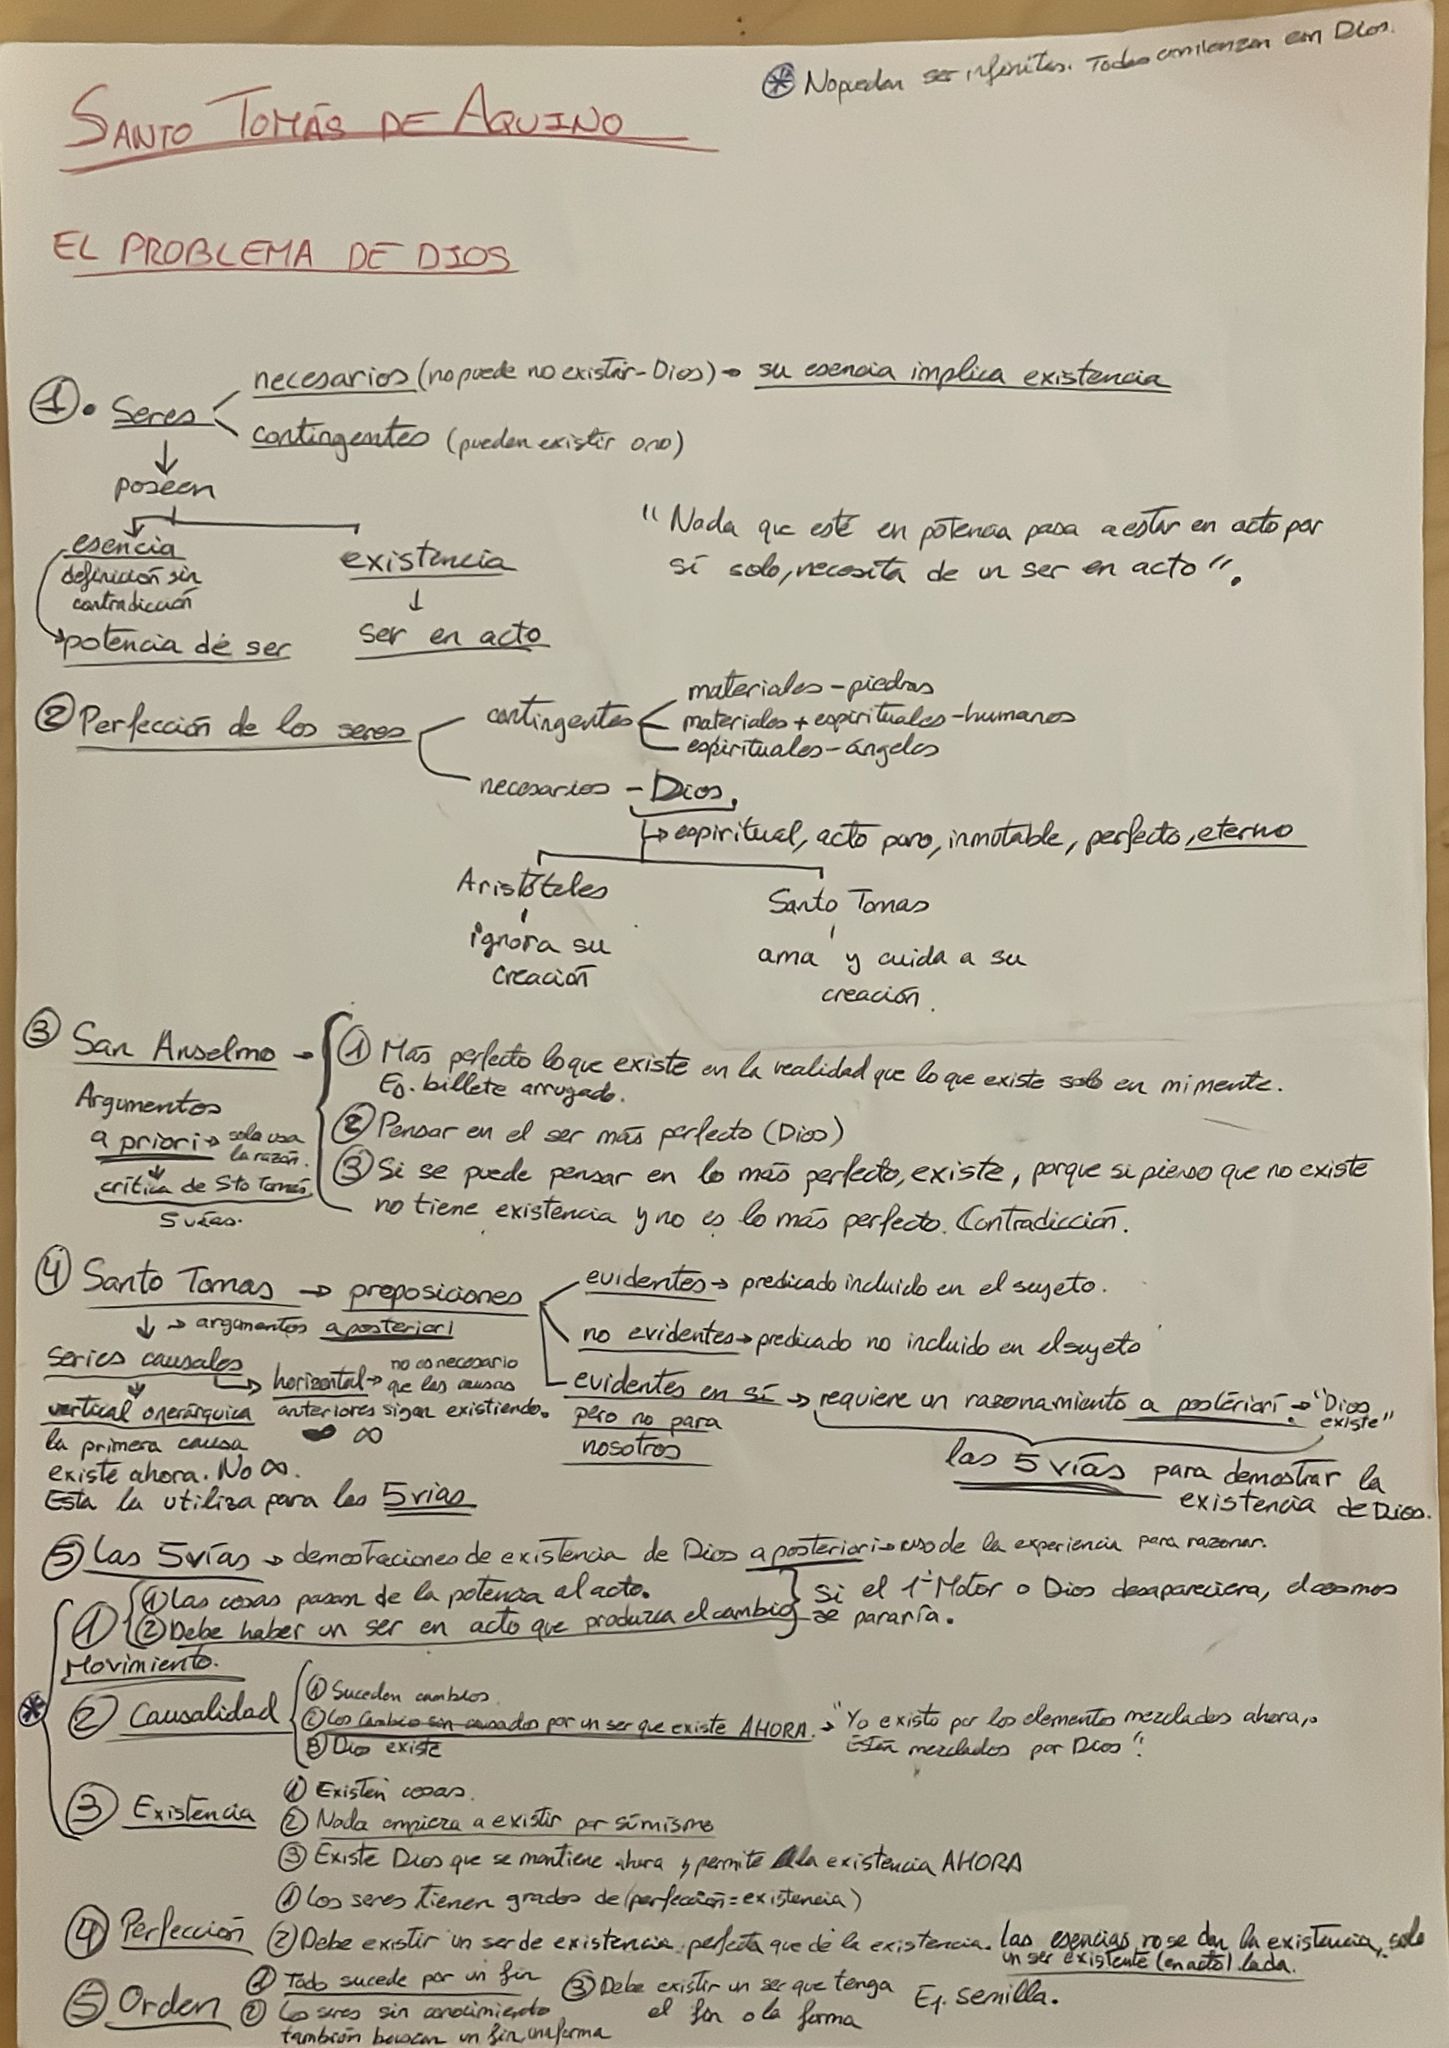 ⊛ No pueden ser infinitas. Todas comienzan en Dios.
SANTO TOMÁS DE AQUINO
EL PROBLEMA DE DIOS
① • Seres
necesarios (no puede no existir - Dios) → su esencia implica existencia
contingentes (pueden existir o no)
↓
poseen
esencia
definición sin
contradicción
potencia de ser
existencia
↓
ser en acto
"Nada que esté en potencia pasa a estar en acto por
sí solo, necesita de un ser en acto".
② Perfección de los seres
contingentes
materiales - piedras
materiales + espirituales - humanos
espirituales - ángeles
necesarios - Dios.
↳ espiritual, acto puro, inmutable, perfecto, eterno
Aristóteles
ignora su
creación
Santo Tomas
ama y cuida a su
creación.
③ San Anselmo →
Argumentos
a priori → solo usa
la razón.
crítica de Sto Tomás
5 vías.
① Más perfecto lo que existe en la realidad que lo que existe solo en mi mente.
Ej. billete arrugado.
② Pensar en el ser más perfecto (Dios)
③ Si se puede pensar en lo más perfecto, existe, porque si pienso que no existe
no tiene existencia y no es lo más perfecto. Contradicción.
④ Santo Tomas → proposiciones
↓ → argumentos a posteriori
evidentes → predicado incluido en el sujeto.
no evidentes → predicado no incluido en el sujeto
evidentes en sí → requiere un razonamiento a posteriori. → "Dios
existe"
pero no para
nosotros
las 5 vías para demostrar la
existencia de Dios.
series causales
↳ horizontal → no es necesario
que las causas
anteriores sigan existiendo.
∞
vertical o jerárquica
la primera causa
existe ahora. No ∞.
Esta la utiliza para las 5 vias
⑤ Las 5 vías → demostraciones de existencia de Dios a posteriori → uso de la experiencia para razonar.
⊛
① Movimiento.
① Las cosas pasan de la potencia al acto.
② Debe haber un ser en acto que produzca el cambio
Si el 1º Motor o Dios desapareciera, el cosmos
se pararía.
② Causalidad
① Suceden cambios.
② Los cambios son causados por un ser que existe AHORA. → "Yo existo por los elementos mezclados ahora,
Están mezclados por Dios".
③ Dios existe
③ Existencia
① Existen cosas.
② Nada empieza a existir por sí mismo
③ Existe Dios que se mantiene ahora y permite la existencia AHORA
④ Perfección
① Los seres tienen grados de (perfección = existencia)
② Debe existir un ser de existencia perfecta que dé la existencia. Las esencias no se dan la existencia, solo
un ser existente (en acto) la da.
⑤ Orden
① Todo sucede por un fin
② Los seres sin conocimiento
también buscan un fin, una forma
③ Debe existir un ser que tenga
el fin o la forma
Ej. Semilla.